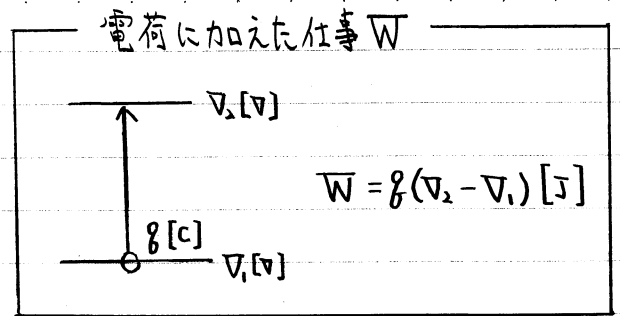 電荷に加えた仕事 W
V₂[V]
W = q(V₂ - V₁) [J]
q[C]
V₁[V]